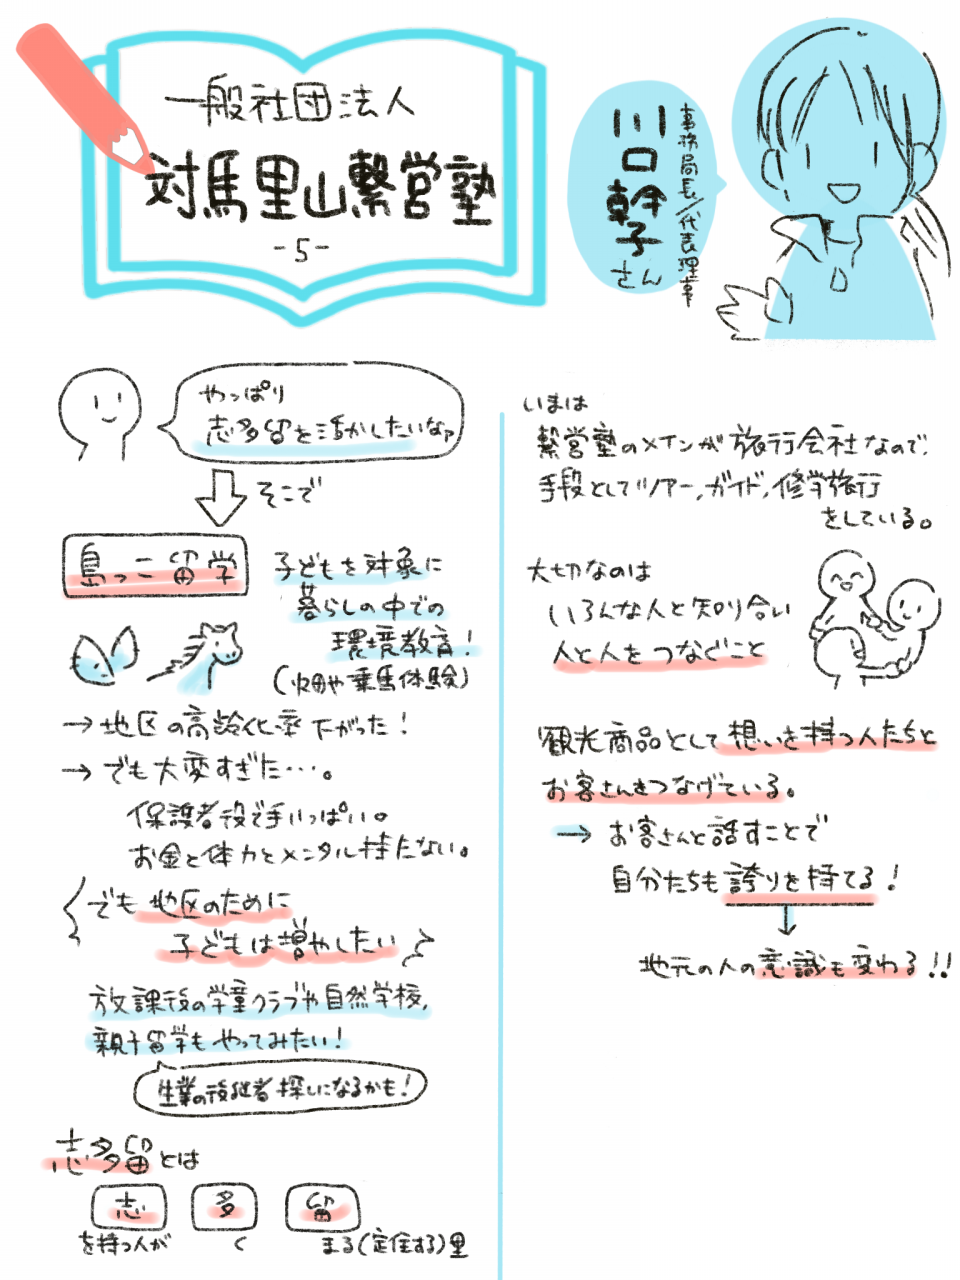 一般社団法人
対馬里山繋営塾
-5-
事務局長/代表理事
川口幹子
さん
やっぱり
志多留を活かしたいなァ
そこで
島っこ留学
子どもを対象に
暮らしの中での
環境教育!
(畑や乗馬体験)
→地区の高齢化率下がった!
→でも大変すぎた…。
保護者役で手いっぱい。
お金と体力とメンタル持たない。
でも地区のために
子どもは増やしたい
放課後の学童クラブや自然学校,
親子留学もやってみたい!
生業の後継者探しになるかも!
志多留とは
志 多 留
を持つ人が く まる(定住する)里
いまは
繋営塾のメインが旅行会社なので,
手段としてツアー,ガイド,修学旅行
をしている。
大切なのは
いろんな人と知り合い
人と人をつなぐこと
観光商品として想いを持つ人たちと
お客さんをつなげている。
→お客さんと話すことで
自分たちも誇りを持てる!
↓
地元の人の意識も変わる!!